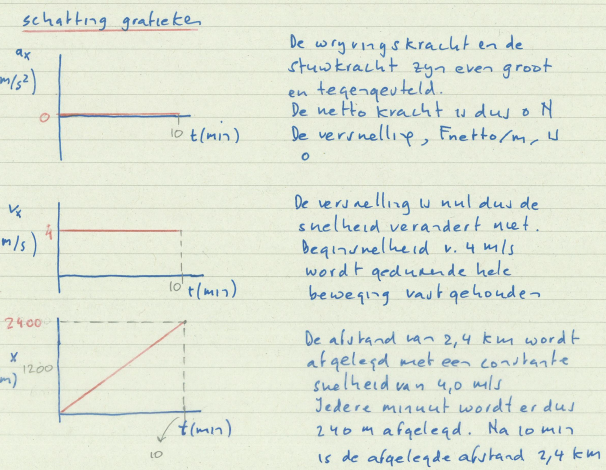 schatting grafieken
ax
m/s²)
0
10 t(min)
De wryvingskracht en de
stuwkracht zyn even groot
en tegengesteld.
De netto kracht is dus 0 N
De versnelling, Fnetto/m, is
0
vx
4
m/s)
10 t(min)
De versnelling is nul dus de
snelheid verandert niet.
Beginsnelheid v. 4 m/s
wordt gedurende hele
beweging vastgehouden
2400
x
1200
m)
t(min)
10
De afstand van 2,4 km wordt
afgelegd met een constante
snelheid van 4,0 m/s
Iedere minuut wordt er dus
240 m afgelegd. Na 10 min
is de afgelegde afstand 2,4 km